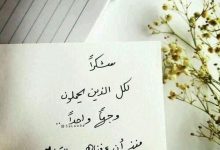 شكراً
لكل الذين يحملون
وجهاً واحداً ..
منذ أن عرفناهم